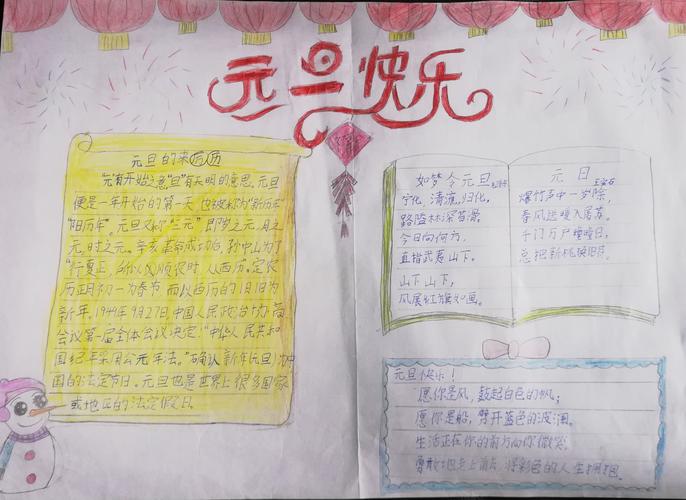 元旦快乐
元旦的来历
"元"有开始之意"旦"有天明的意思。元旦
便是一年开始的第一天,也被称为"新历年"
"阳历年"。元旦又称"三元"即岁之元、月之
元、时之元。辛亥革命成功后,孙中山为了
"行夏正,所以顺农时,从西历。定农
历正月初一为春节,而以西历的1月1日为
新年。1949年9月27日中国人民政治协商
会议第一届全体会议决定:"中华人民共和
国纪年采用公元年法。"确认新年元旦为中
国的法定节日。元旦也是世界上很多国家
或地区的法定假日。
如梦令元旦
宁化、清流、归化,
路隘林深苔滑。
今日向何方,
直指武夷山下。
山下山下,
风展红旗如画。
元日
王安石
爆竹声中一岁除,
春风送暖入屠苏。
千门万户曈曈日,
总把新桃换旧符。
元旦快乐!
愿你是风,鼓起白色的帆;
愿你是船,劈开蓝色的波澜。
生活正在你的前方向你微笑,
勇敢地走上前去,将彩色的人生拥抱。